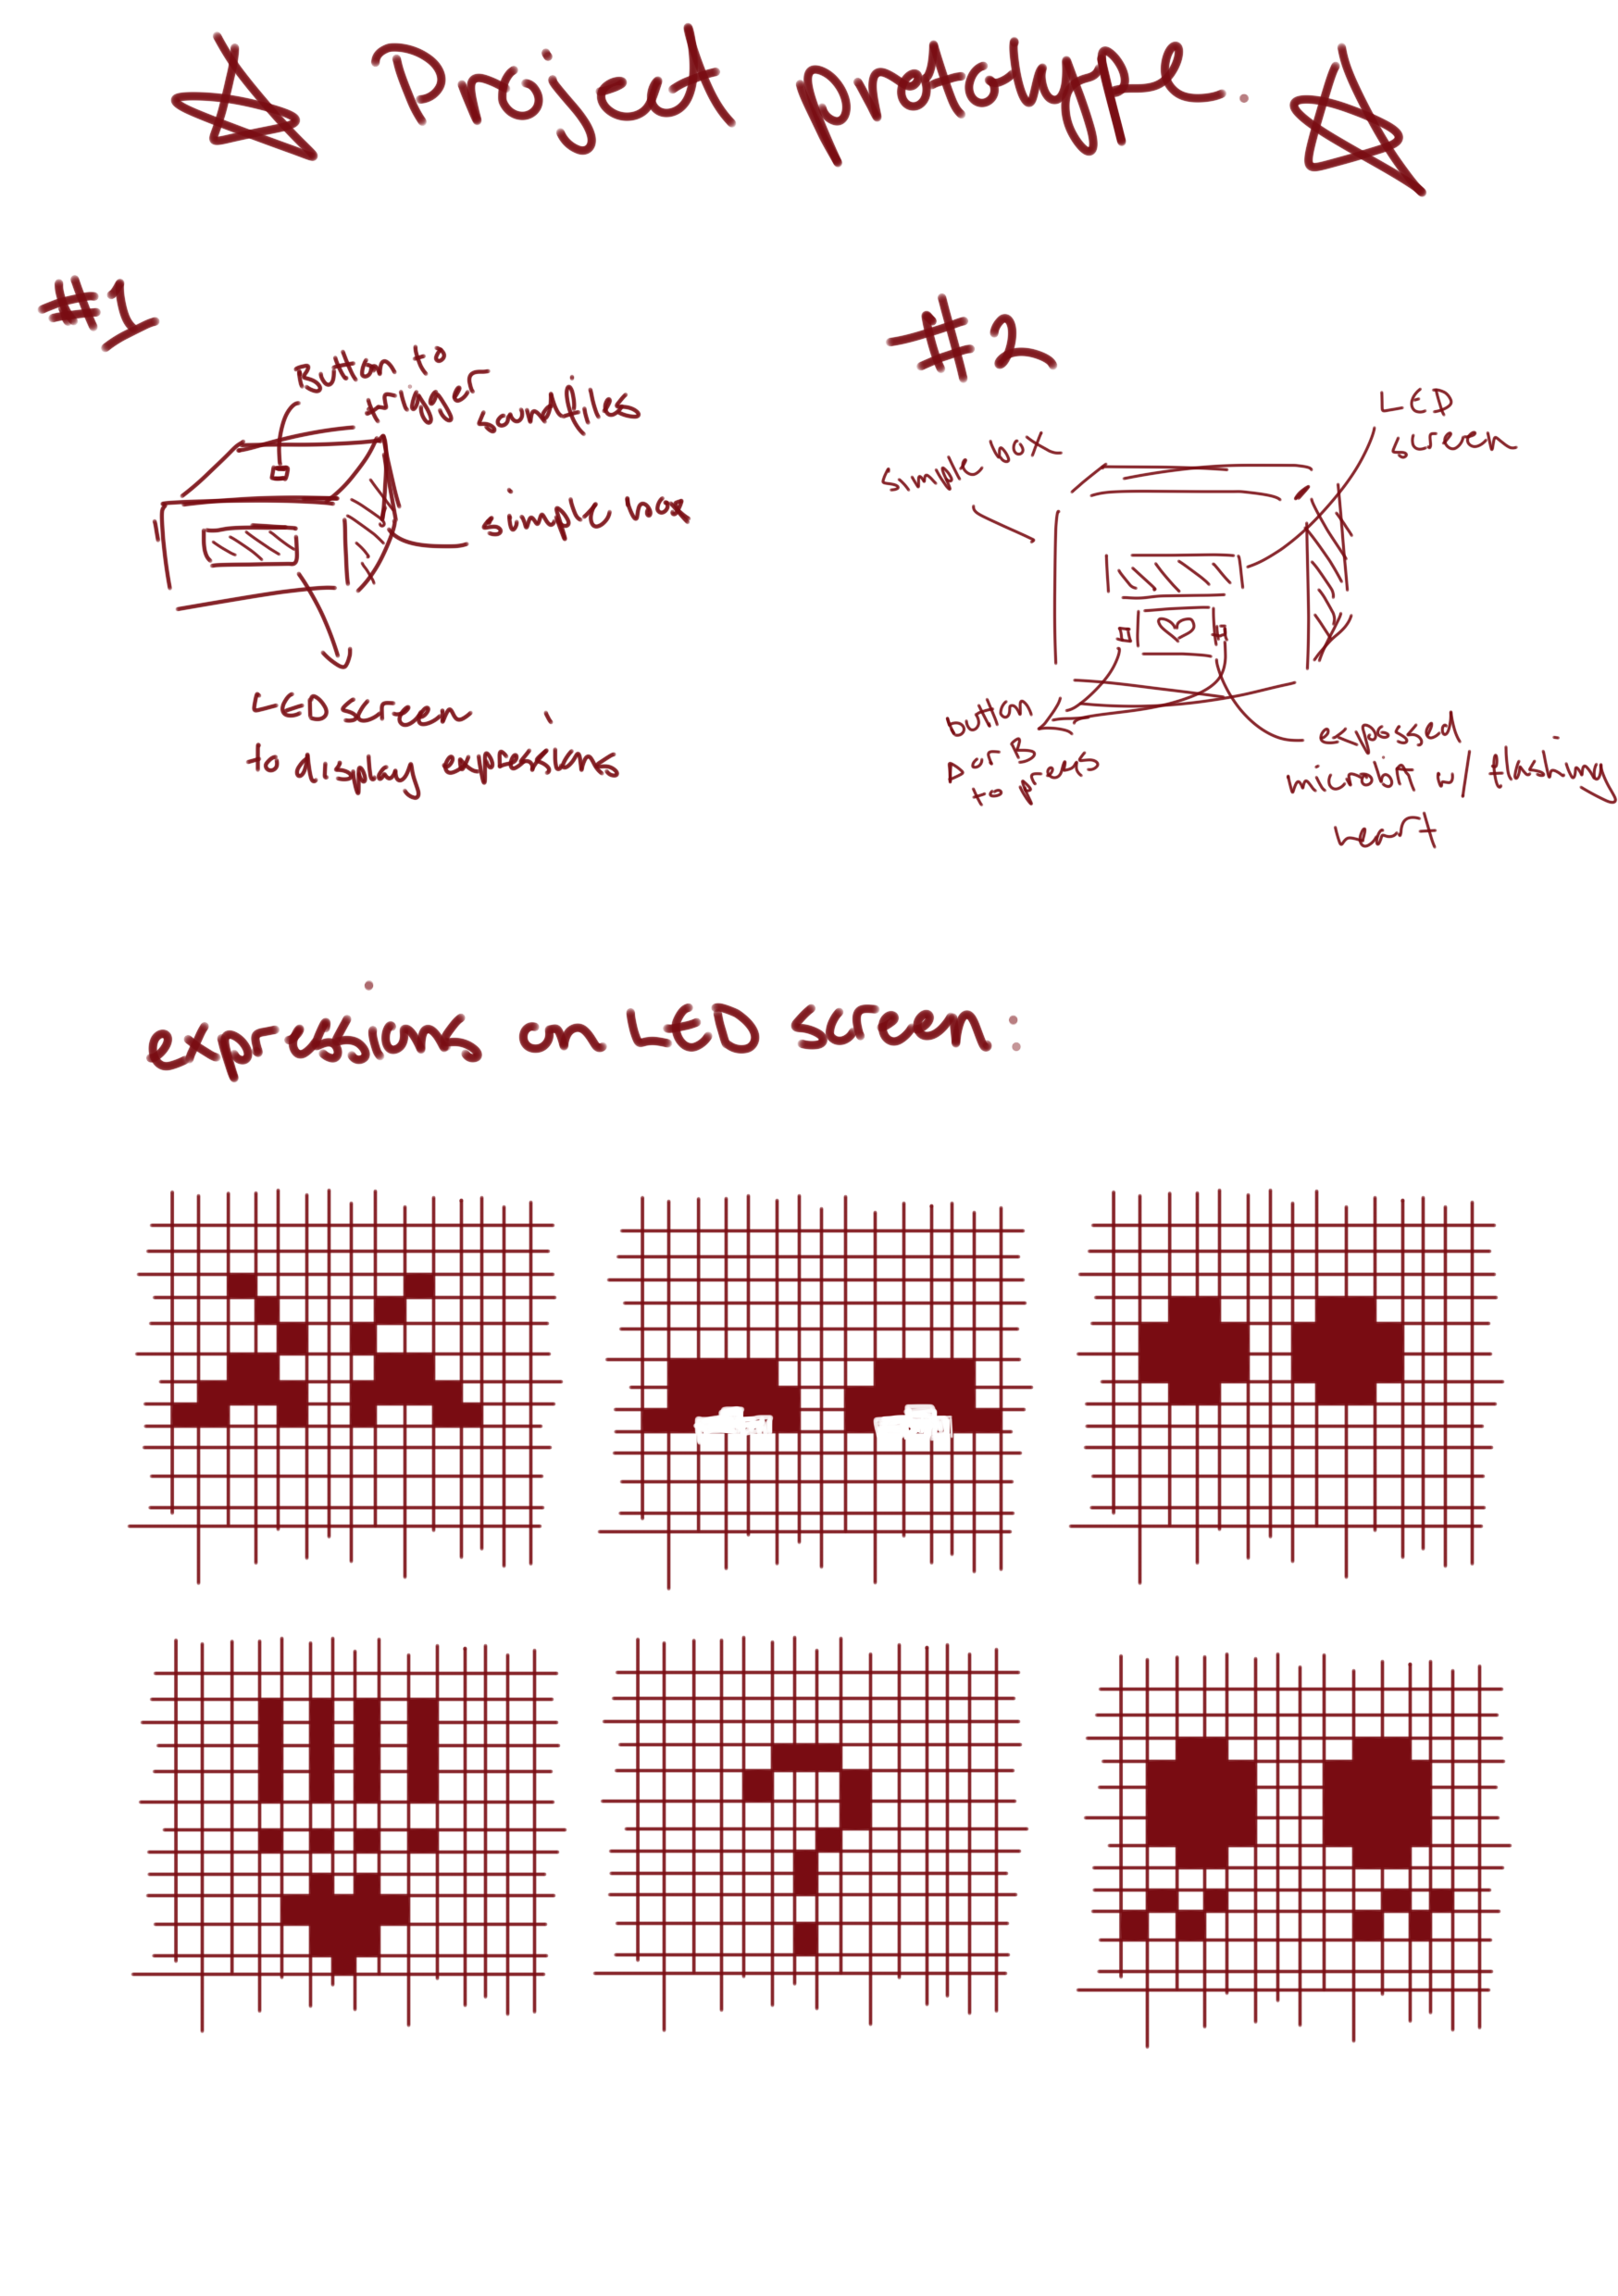 Project prototype
#1
button to
trigger
soundfiles
simple box
LED screen
to display expressions
#2
LED
screen
simple box
button
A or B
to press
exposed
microbit w/ flashing
heart
expressions on LED screen: